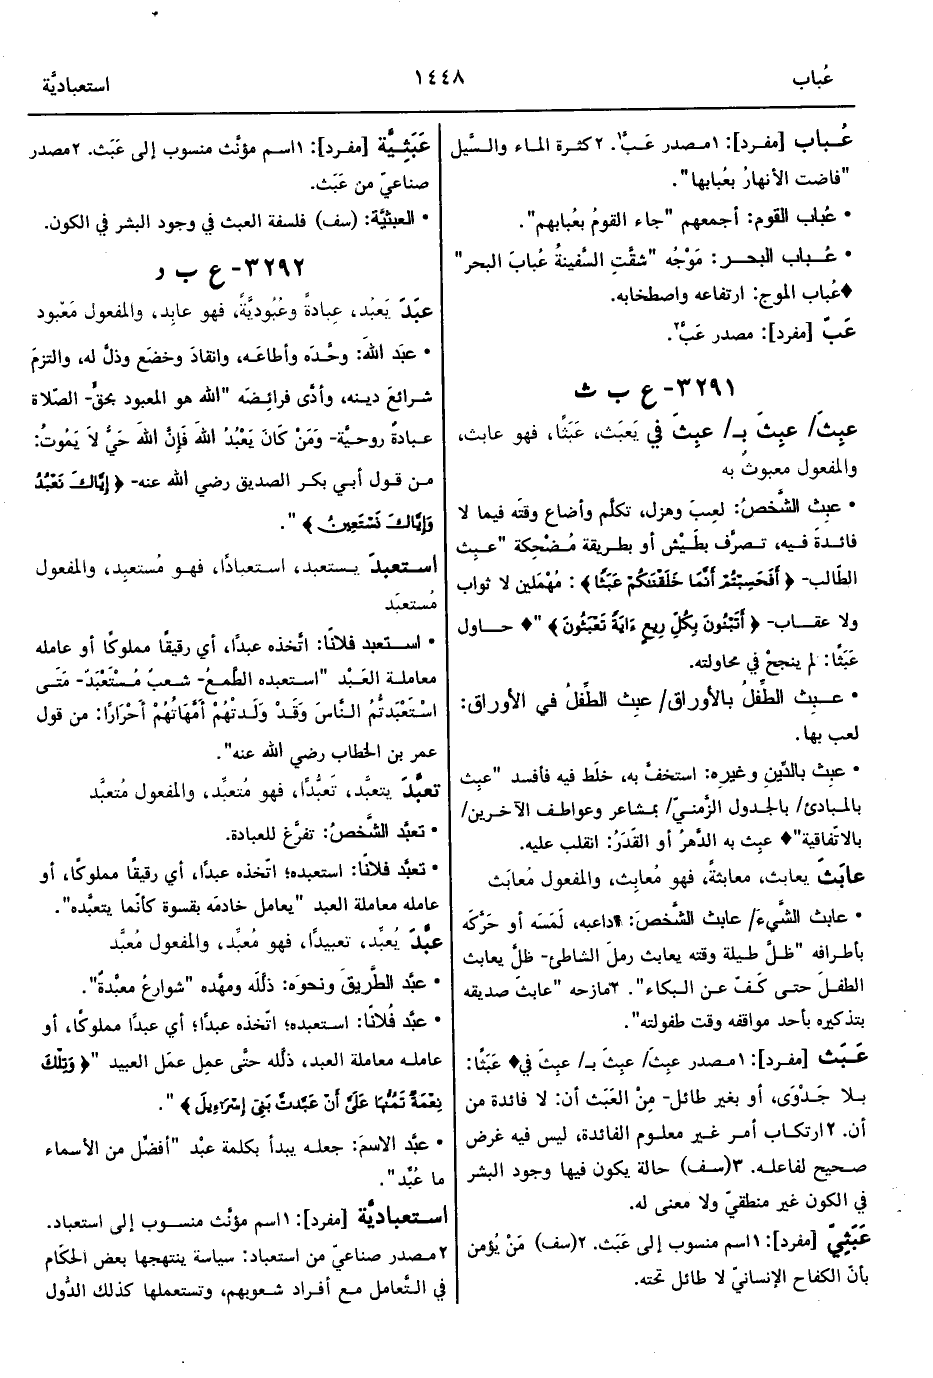 عُباب
١٤٤٨
استعباديَّة
عُـباب [مفـرد]: ١مصدر عَـبَّ١. ٢ كثرة المـاء والسَّيل
"فاضت الأنهارُ بعُبابها".
• عُباب القوم: أجمعهم "جاء القومُ بعُبابهم".
• عُـباب البحـر: مَوْجُه "شقَّتِ السَّفينةُ عُبابَ البحر"
♦عُباب الموج: ارتفاعه واصطخابه.
عَبّ [مفرد]: مصدر عَبَّ٢.
٣٢٩١- ع ب ث
عبِثَ/ عبِثَ بـ/ عبِثَ في يَعبَث، عَبَثًا، فهو عابث،
والمفعول معبوث به
• عبِث الشَّخصُ: لعِبَ وهزل، تكلَّم وأضاع وقتَه فيما لا
فائدةَ فيه، تـصرَّف بطَيْش أو بطريقة مُـضْحِكة "عـبِث
الطَّالب- ﴿أَفَحَسِبْتُمْ أَنَّمَا خَلَقْنَاكُمْ عَبَثًا﴾: مُهْمَلين لا ثواب
ولا عقـاب- ﴿أَتَبْنُونَ بِكُلِّ رِيعٍ ءَايَةً تَعْبَثُونَ﴾"♦ حـاول
عَبَثًا: لم ينجحْ في محاولته.
• عـبِث الطِّفلُ بـالأوراق/ عبِث الطِّفلُ في الأوراق:
لعب بها.
• عبِث بالدِّينِ وغيرِه: استخفَّ به، خلَط فيه فأفسد "عبِث
بالمـبادئ/ بالجدول الزَّمنيّ/ بمـشاعر وعواطـف الآخـرين/
بالاتّفاقية"♦ عبِث به الدَّهرُ أو القَدَرُ: انقلب عليه.
عابَثَ يعابث، معابثةً، فهو مُعابِث، والمفعول مُعابَث
• عابث الشَّيءَ/ عابث الشَّخصَ: ١داعبه، لَمَسَه أو حَرَّكَه
بأطرافه "ظـلَّ طـيلة وقته يعابث رملَ الشاطئ- ظلَّ يعابث
الطفلَ حتـى كَـفّ عـن البكاء". ٢مازحه "عابثَ صديقه
بتذكيره بأحد مواقفه وقت طفولته".
عَـبَث [مفرد]: ١مصدر عبِثَ/ عبِثَ بـ/ عبِثَ في♦ عَبَثًا:
بـلا جَـدْوَى، أو بغير طائل- مِنْ العَبَث أن: لا فائدة من
أن. ٢ارتكاب أمـر غـير معلـوم الفائدة، ليس فيه غرض
صـحيح لفاعلـه. ٣(سف) حالة يكون فيها وجود البشر
في الكون غير منطقيّ ولا معنى له.
عَبَثِيّ [مفرد]: ١اسم منسوب إلى عَبَث. ٢(سف) مَنْ يُؤمن
بأنّ الكفاح الإنسانيّ لا طائل تحته.
عَبَثِيَّة [مفرد]: ١اسم مؤنَّث منسوب إلى عَبَث. ٢مصدر
صناعيّ من عَبَث.
• العبثيَّة: (سف) فلسفة العبث في وجود البشر في الكون.
٣٢٩٢- ع ب د
عبَدَ يَعبُد، عِبادةً وعُبُوديَّةً، فهو عابِد، والمفعول مَعْبود
• عبَد اللهَ: وحَّدَه وأطاعَـه، وانقادَ وخضَع وذلَّ له، والتزمَ
شرائعَ ديـنه، وأدَّى فرائـضَه "الله هو المعبود بحقٍّ- الصَّلاة
عبـادةٌ روحيَّة- وَمَنْ كَانَ يَعْبُدُ اللهَ فَإِنَّ اللهَ حَيٌّ لاَ يَمُوتُ:
مـن قـول أبـي بكـر الصديق رضي الله عنه- ﴿إِيَّاكَ نَعْبُدُ
وَإِيَّاكَ نَسْتَعِينُ﴾".
اسـتعبدَ يـستعبد، استعبادًا، فهـو مُستعبِد، والمفعول
مُستعبَد
• اسـتعبد فلانًا: اتَّخذه عبدًا، أي رقيقًا مملوكًا أو عامله
معاملـة العَـبْد "استعبده الطَّمعُ- شـعبٌ مُـسْتَعْبَدٌ- مَتَـى
اسْتَعْبَدتُّمُ الـنَّاسَ وَقَـدْ وَلَـدتْهُمْ أُمَّهَاتُهُمْ أَحْرَارًا: من قول
عمر بن الخطاب رضي الله عنه".
تعبَّدَ يتعبَّد، تَعبُّدًا، فهو مُتعبِّد، والمفعول مُتعبَّد
• تعبَّد الشَّخصُ: تفرَّغ للعبادة.
• تعبَّد فلانًا: استعبده؛ اتّخذه عبدًا، أي رقيقًا مملوكًا، أو
عامله معاملة العبد "يعامل خادمَه بقسوة كأنّما يتعبَّده".
عبَّدَ يُعبِّد، تعبيدًا، فهو مُعبِّد، والمفعول مُعبَّد
• عبَّد الطَّريقَ ونحوَه: ذلَّله ومهَّده "شوارعُ معبَّدةٌ".
• عبَّد فُلانًا: استعبده؛ اتّخذه عبدًا؛ أي عبدًا مملوكًا، أو
عاملـه معاملة العبد، ذلَّله حتَّى عمِل عمَل العبيد "﴿وَتِلْكَ
نِعْمَةٌ تَمُنُّهَا عَلَيَّ أَنْ عَبَّدتَّ بَنِي إِسْرَاءِيلَ﴾".
• عبَّد الاسمَ: جعلـه يبدأ بكلمة عبْد "أفضل من الأسماء
ما عُبِّد".
استعباديَّة [مفرد]: ١اسم مؤنَّث منسـوب إلى استعباد.
٢مـصدر صناعيّ من استعباد: سياسة ينتهجها بعض الحُكّام
في الـتَّعامل مـع أفـراد شعوبهم، وتستعملها كذلك الدُّول